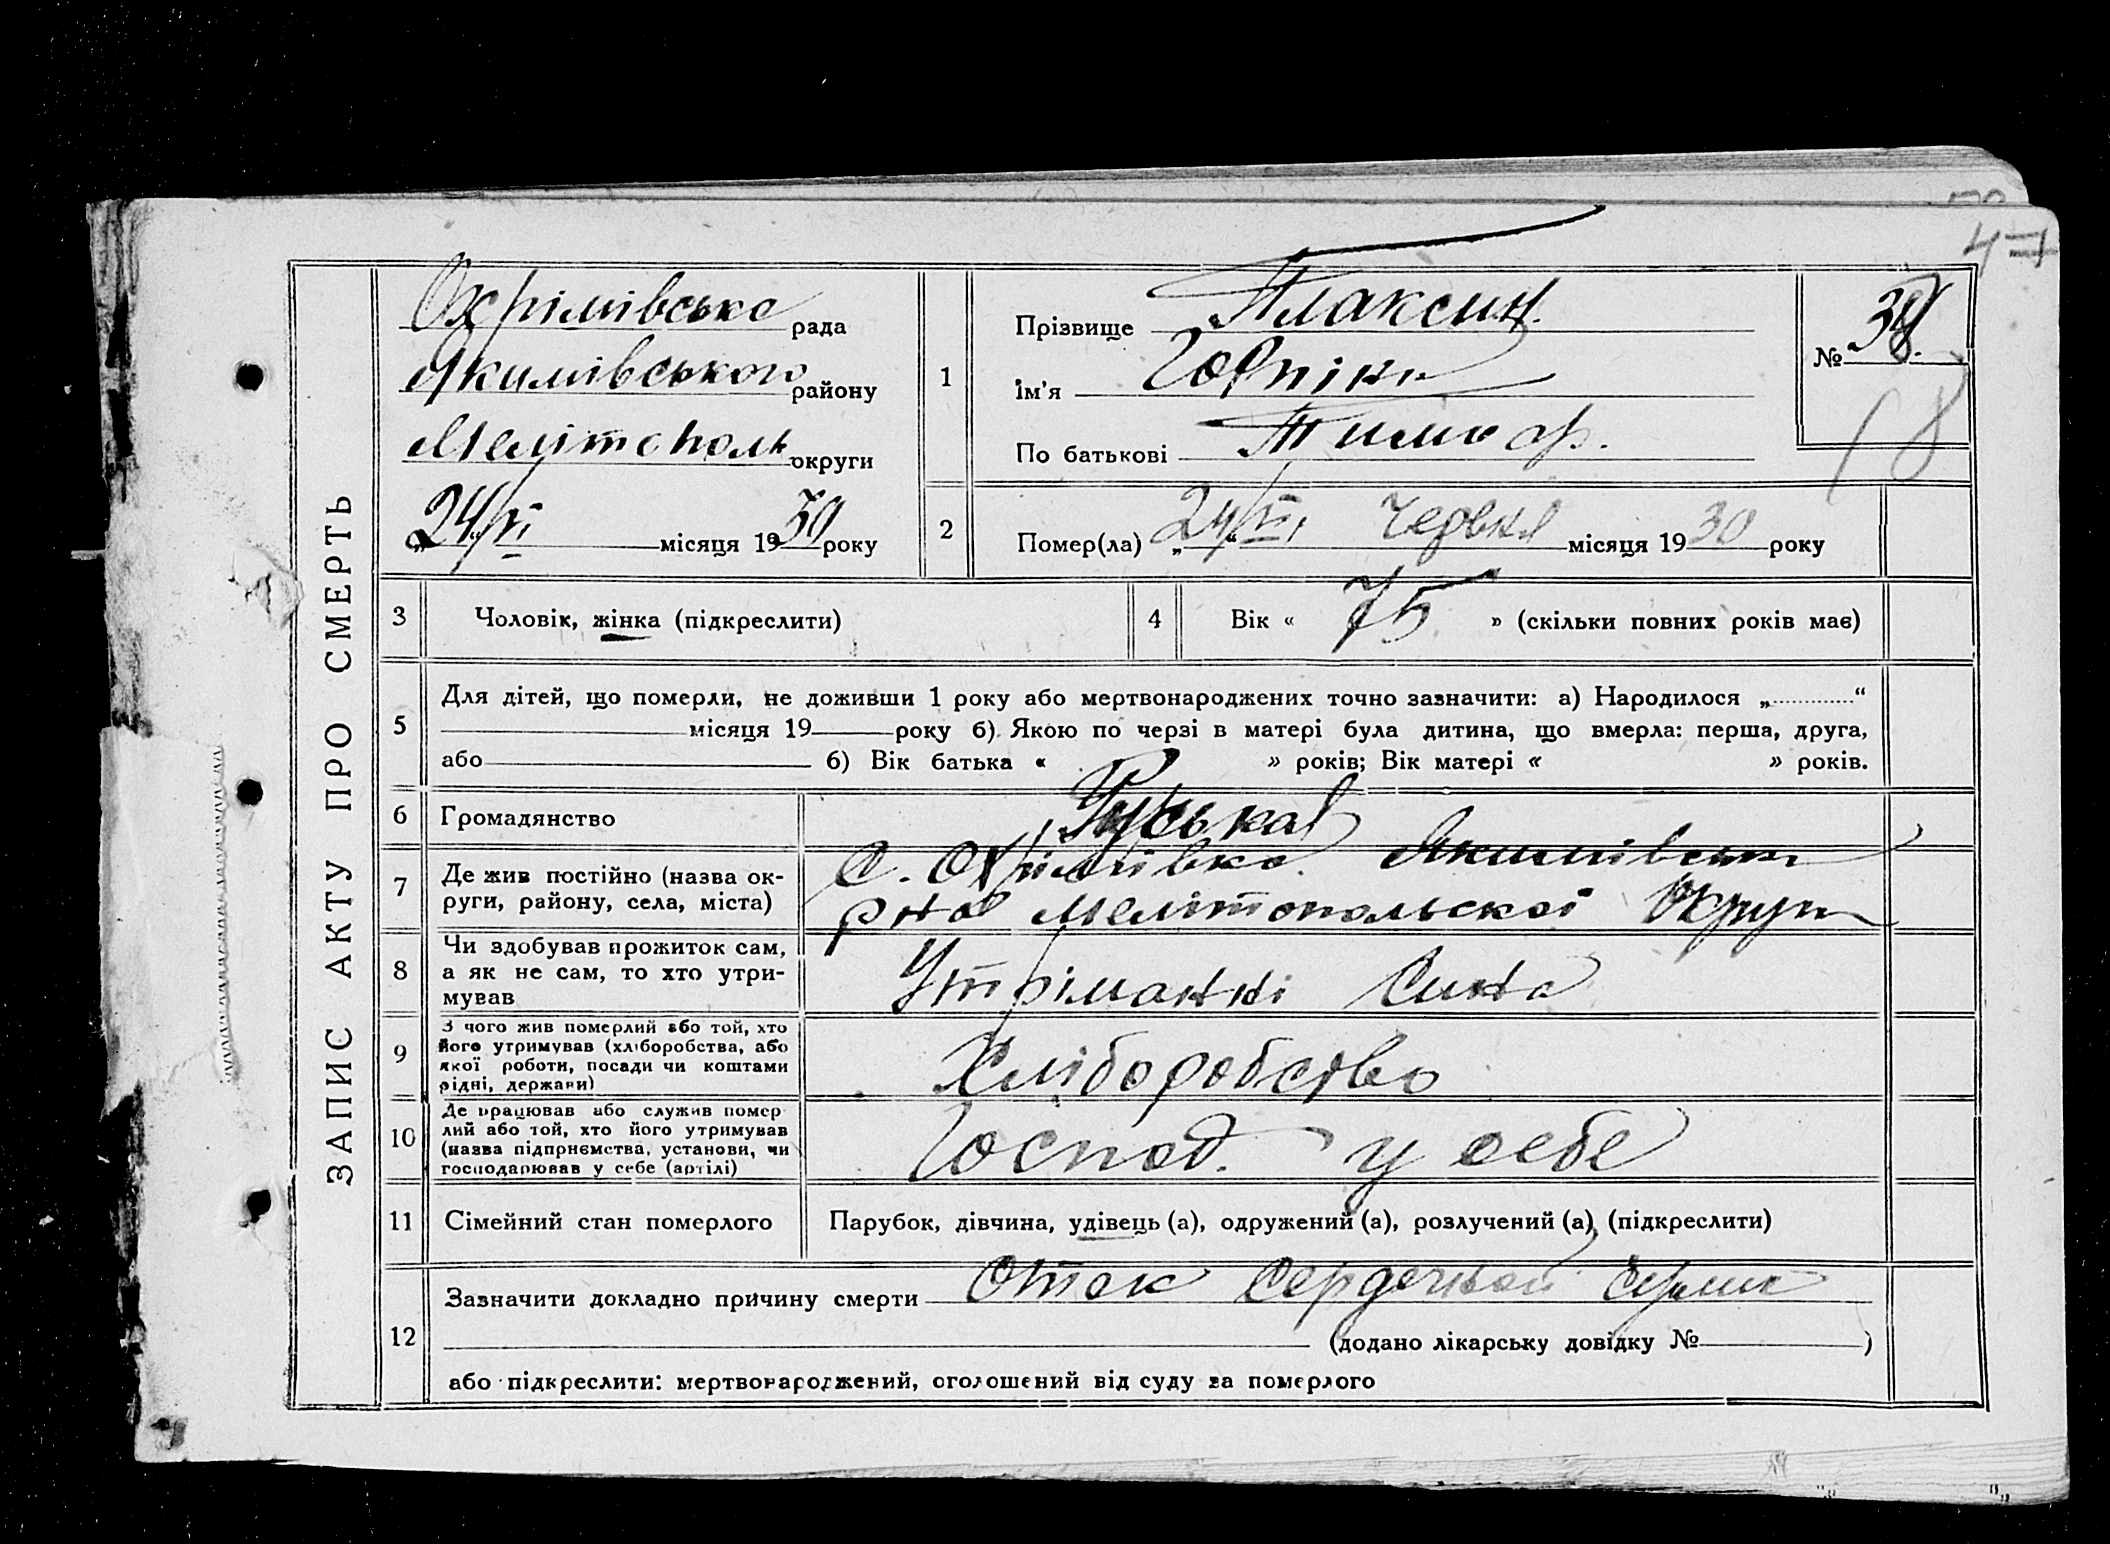 47
ЗАПИС АКТУ ПРО СМЕРТЬ
Охрімівська рада
Якимівського району
Мелітополь округи
„24/VI“ місяця 1930 року
1
Прізвище Плаксин.
Ім'я
По батькові Тимоф.
№ 38.
18
2
Помер(ла) „24/VI“ Червня місяця 1930 року
3 Чоловік, жінка (підкреслити)
4 Вік « 75 » (скільки повних років має)
5 Для дітей, що померли, не доживши 1 року або мертвонароджених точно зазначити: а) Народилося „ “
місяця 19 року б) Якою по черзі в матері була дитина, що вмерла: перша, друга,
або б) Вік батька « » років; Вік матері « » років.
6 Громадянство Руська
7 Де жив постійно (назва округи, району, села, міста) с. Охрімівка Якимівськ
рна Мелітопольскої Округи
8 Чи здобував прожиток сам,
а як не сам, то хто утримував
Утріманні Сина
9 З чого жив померлий або той, хто
його утримував (хліборобства, або
якої роботи, посади чи коштами
рідні, держави)
Хліборобство
10 Де працював або служив померлий або той, хто його утримував
(назва підприємства, установи, чи
господарював у себе (артілі)
Господ. у себе
11 Сімейний стан померлого Парубок, дівчина, удівець (а), одружений (а), розлучений (а) (підкреслити)
12 Зазначити докладно причину смерти Отек Сердечной
(додано лікарську довідку № )
або підкреслити: мертвонароджений, оголошений від суду за померлого